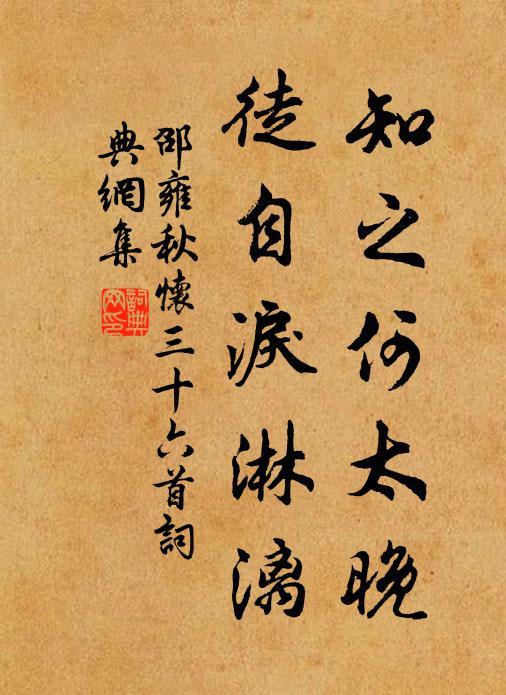 知之何太晚
徒自淚淋漓
邵雍秋懷三十六首詞
典網集
詞典
網印